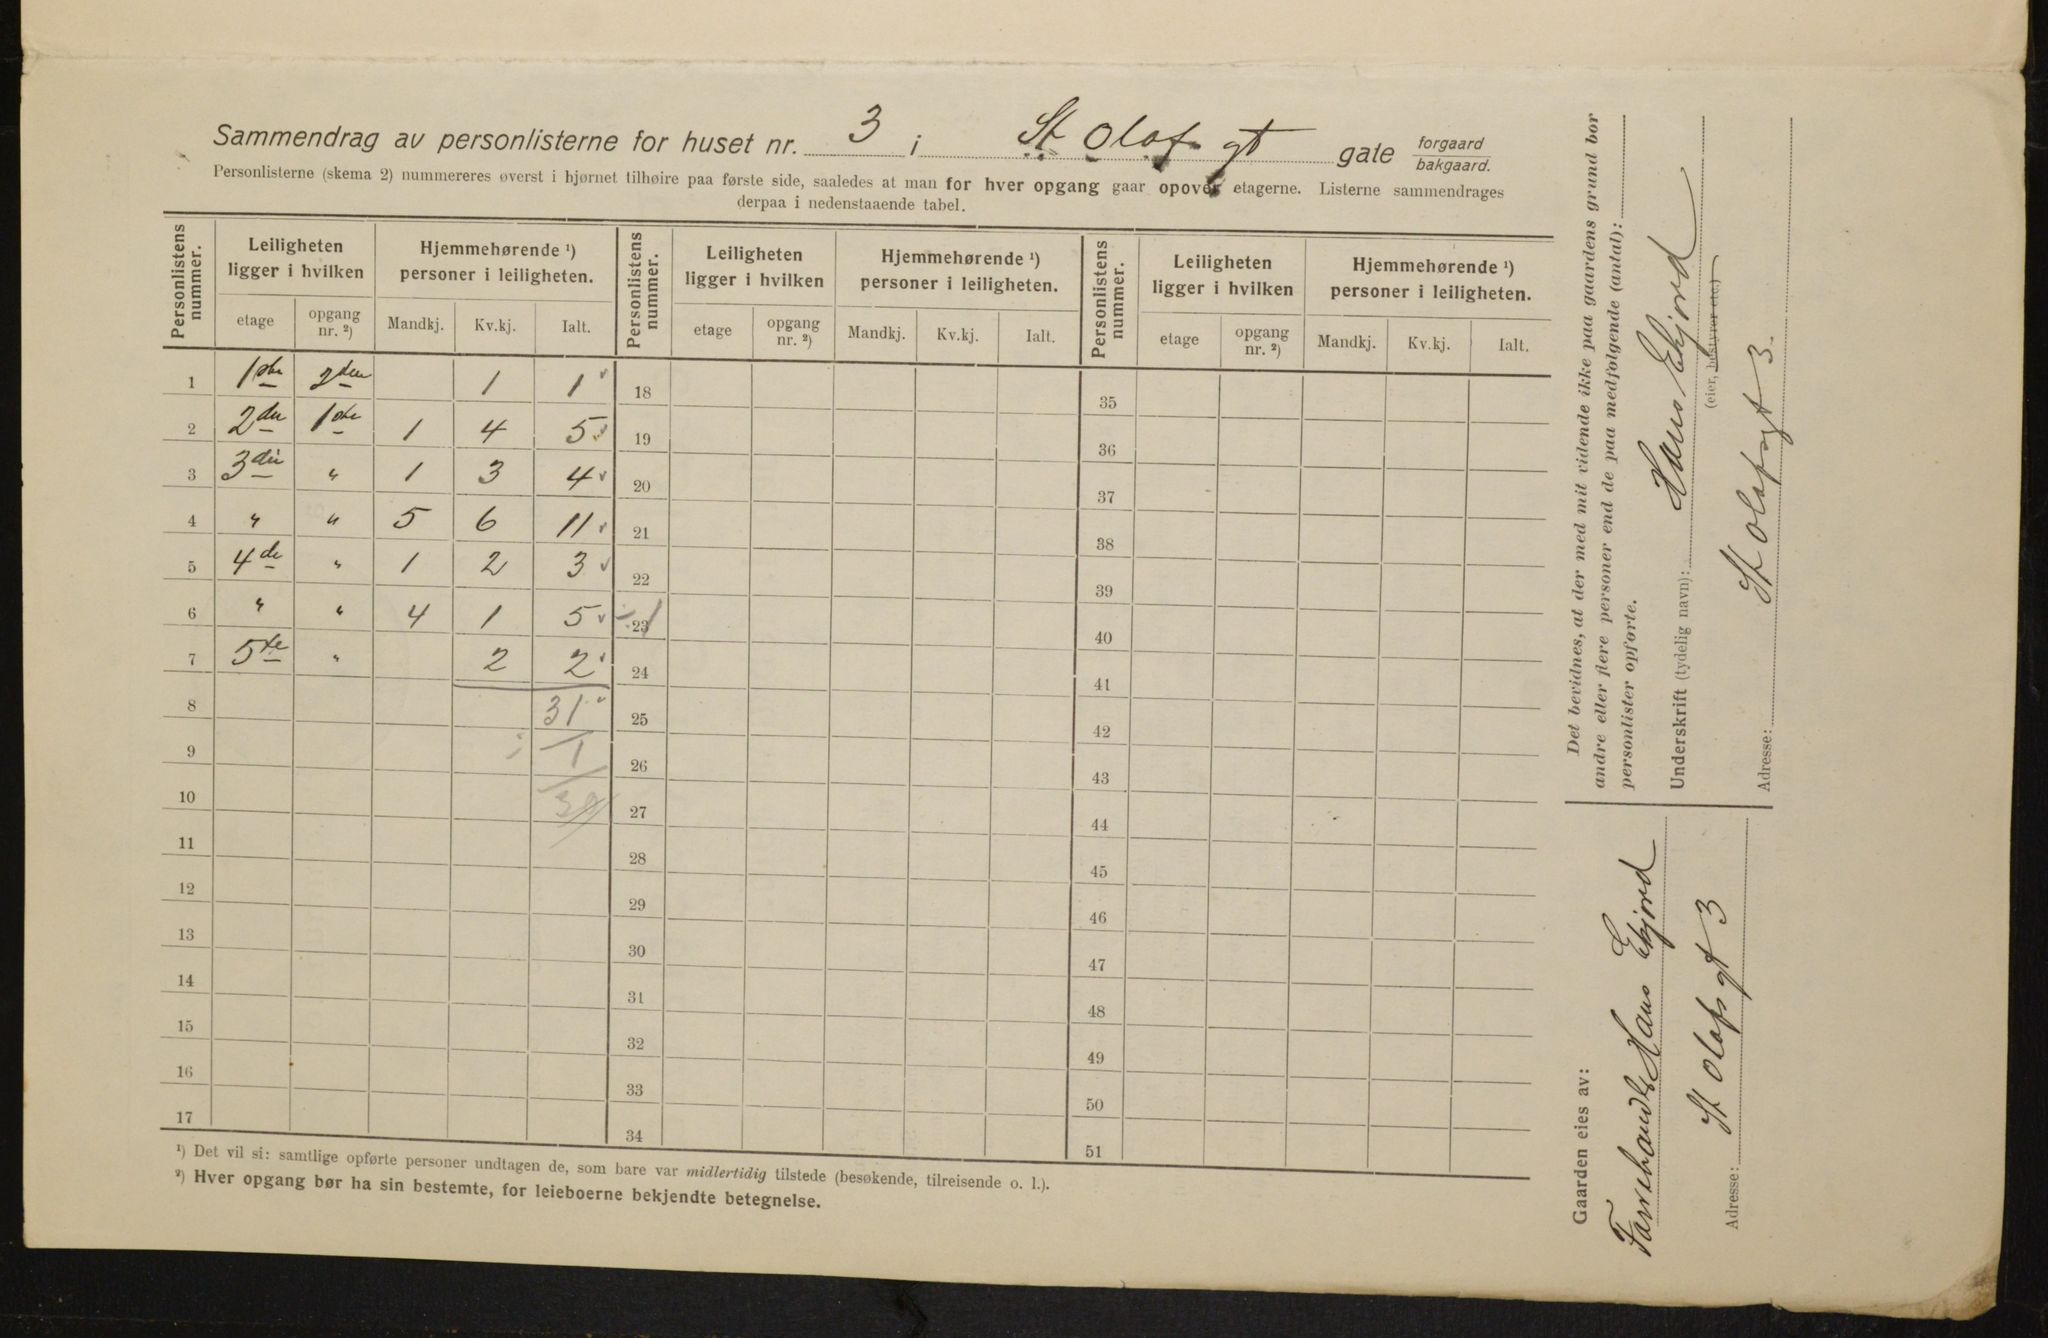 Sammendrag av personlisterne for huset nr. 3 i St Olafsgt gate forgaard bakgaard.
Personlisterne (skema 2) nummereres øverst i hjørnet tilhøire paa første side, saaledes at man for hver opgang gaar opover etagerne. Listerne sammendrages
derpaa i nedenstaaende tabel.
Personlistens nummer. Leiligheten ligger i hvilken Hjemmehørende ¹) personer i leiligheten. Personlistens nummer. Leiligheten ligger i hvilken Hjemmehørende ¹) personer i leiligheten. Personlistens nummer. Leiligheten ligger i hvilken Hjemmehørende ¹) personer i leiligheten.
etage opgang nr. ²) Mandkj. Kv.kj. Ialt. etage opgang nr. ²) Mandkj. Kv.kj. Ialt. etage opgang nr. ²) Mandkj. Kv.kj. Ialt.
1 1ste 2den 1 1 18 35
2 2den 1ste 1 4 5 19 36
3 3die " 1 3 4 20 37
4 " " 5 6 11 21 38
5 4de " 1 2 3 22 39
6 " " 4 1 5 ÷1 23 40
7 5te " 2 2 24 41
8 31 25 42
9 ÷ 1 26 43
10 30 27 44
11 28 45
12 29 46
13 30 47
14 31 48
15 32 49
16 33 50
17 34 51
¹) Det vil si: samtlige opførte personer undtagen de, som bare var midlertidig tilstede (besøkende, tilreisende o. l.).
²) Hver opgang bør ha sin bestemte, for leieboerne bekjendte betegnelse.
Det bevidnes, at der med mit vidende ikke paa gaardens grund bor
andre eller flere personer end de paa medfølgende (antal):
personlister opførte.
Underskrift (tydelig navn): Hans Ekjord
(eier, bestyrer etc.)
Adresse: St Olafsgt 3.
Gaarden eies av:
Hans Ekjord
Adresse: St Olafsgt 3